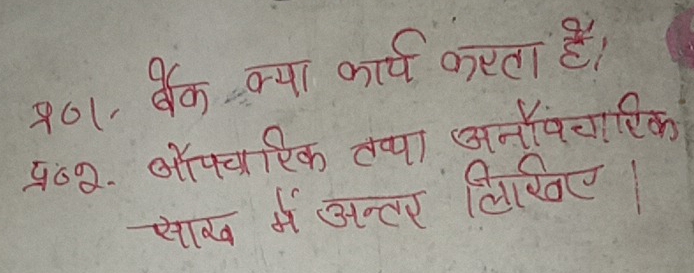 प्र०1. बैंक क्या कार्य करता है।
प्र०2. औपचारिक तथा अनौपचारिक
साख में अन्तर लिखिए।